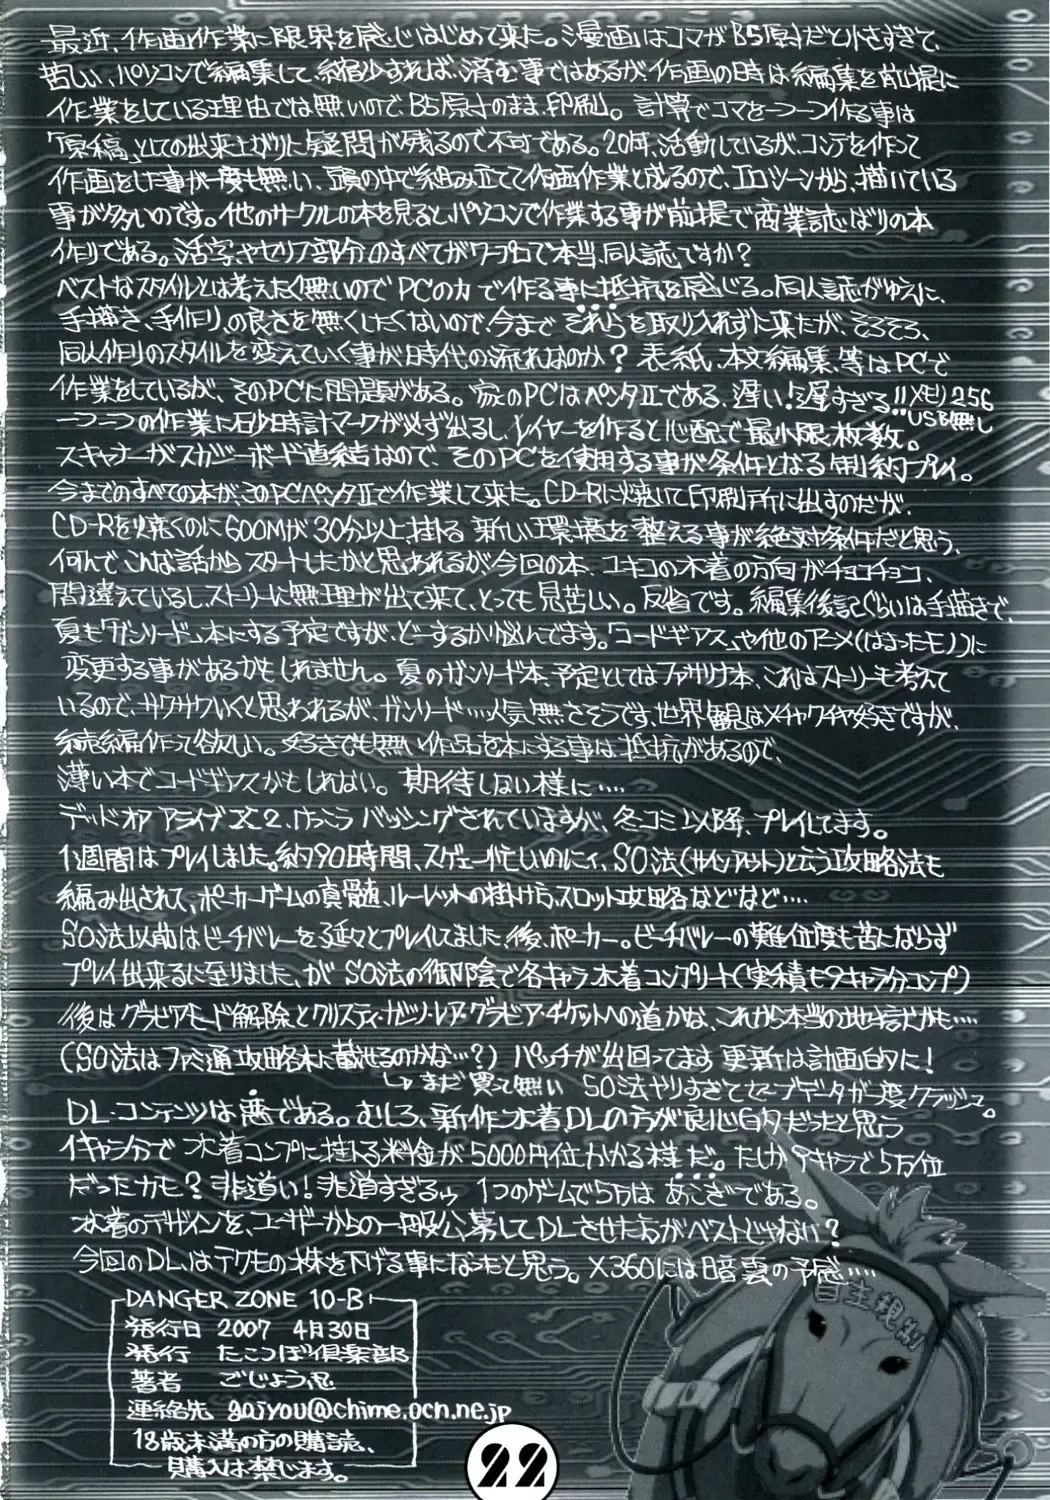 最近、作画作業に限界を感じはじめて来た。漫画はコマがB5原寸だと小さすぎて、
苦しい、パソコンで編集して、縮少すれば、済む事ではあるが、作画の時は編集を前提に
作業をしている理由では無いので、B5原寸のまま、印刷。計算でコマを一つ一つ作る事は
「原稿」としての出来上がりに疑問が残るので不可である。20年、活動しているが、コンテを作って
作画をした事が一度も無い、頭の中で組み立てて作画作業と成るので、エロシーンから、描いている
事が多いのです。他のサークルの本を見ると、パソコンで作業する事が前提で商業誌ばりの本
作りである。活字やセリフ部分のすべてがワープロで本当、同人誌ですか?
ベストなスタイルとは考えたく無いのでPCの力で作る事に抵抗を感じる。同人誌がゆえに、
手描き、手作り、の良さを無くしたくないので、今までそれらを取り入れずに来たが、そろそろ、
同人作りのスタイルを変えていく事が時代の流れなのか?表紙、本文編集、等はPCで
作業をしているが、そのPCに問題がある。家のPCはペンタⅡである、遅い!遅すぎる!!メモリ256
USB無し
一つ一つの作業に砂時計マークが必ず出るし、レイヤーを作ると心配で最小限枚数。
スキャナーがスカジーボード直結なので、そのPCを使用する事が条件となる制約プレイ。
今までのすべての本が、このPCペンタⅡで作業して来た。CD-Rに焼いて印刷所に出すのだが、
CD-Rを焼くのに600Mが30分以上、掛る 新しい環境を整える事が絶対条件だと思う、
何んで、こんな話からスタートしたかと思われるが今回の本、ユキコの水着の方向がチョコチョコ、
間違えているし、ストーリーに無理が出て来て、とっても見苦しい。反省です。編集後記ぐらいは手描きで、
夏も「ガンソード」本にする予定ですが、どーするか悩んでます。「コードギアス」や他のアニメ(はまったモノ)に
変更する事があるかもしれません。夏のガンソード本、予定としてはファサリナ本、これはストーリーも考えて
いるので、サクサクいくと思われるが、ガンソード…人気、無さそうです、世界観はメチャクチャ好きですが、
続編作って欲しい。好きでも無い作品を本にする事は抵抗があるので、
薄い本でコードギアスかもしれない。期待しない様に‥‥
デッド オア アライブX2、けっこうバッシングされていますが、冬コミ以降、プレイしてます。
1週間はプレイしました。約90時間、スゲェー忙しいのにィ、SO法(サインアウト)と云う攻略法も
編み出されて、ポーカーゲームの真髄、ルーレットの掛け方、スロット攻略などなど‥‥
SO法以前はビーチバレーを延々とプレイしてました 後、ポーカー。ビーチバレーの難位度も苦にならず
プレイ出来るに至りました、が SO法の御陰で各キャラ、水着コンプリート(実積も9キャラ分コンプ)
後はグラビアモード解除とクリスティ・ガッツ・レア・グラビア・チケットへの道かな、これから本当の地獄かも‥‥
(SO法はファミ通攻略本に載せるのかな…?) パッチが出回ってます 更新は計画的に!
まだ買って無い SO法やりすぎてセーブデータが一度クラッシュ。
DL・コンテンツは悪である。むしろ、新作水着DLの方が良心的だったと思う
1キャラ分で 水着コンプに掛る料金が5000円位かかる様だ。たしか9キャラで5万位
だったカモ?非道い!非道すぎるッ 1つのゲームで5万は あこぎである。
水着のデザインを、ユーザーからの一般公募してDLさせた方がベストじゃない?
今回のDLはテクモの株を下げる事になったと思う。X360には暗雲の予感‥‥
自主規制
DANGER ZONE 10-B
発行日 2007 4月30日
発行 たこつぼ倶楽部
著者 ごじょう忍
連絡先 gojyou@chime.ocn.ne.jp
18歳未満の方の購読、
購入は禁じます。
22